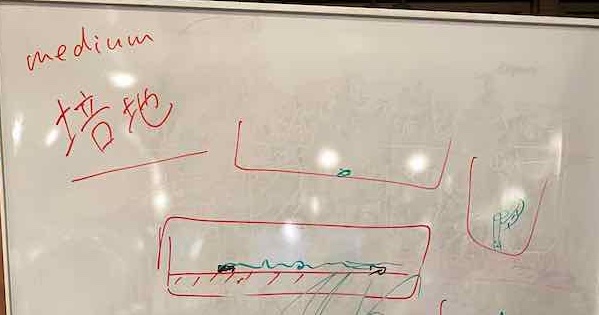 medium
培地